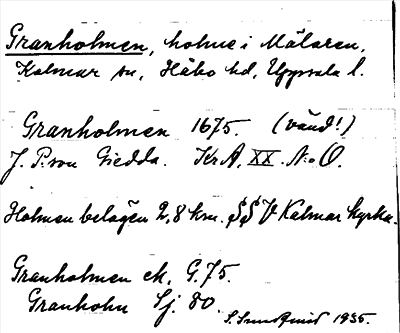 Granholmen, holme i Mälaren,
Kalmar sn, Håbo hd, Uppsala l.
Granholmen 1675. (vänd!)
J. P:son Giedda. KrA. XX. N:o O.
Holmen belägen 2,8 km. SSV Kalmar kyrka.
Granholmen ek. G. 75.
Granholm Sj. 80.
1935.